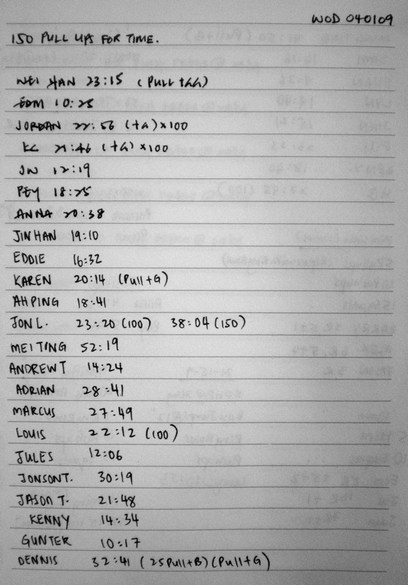 WOD 040109
150 PULL UPS FOR TIME.
WEI HAN 23:15 (PULL +GA)
EDM 10:25
JORDAN 22:56 (+G) x100
KC 21:46 (+G) x100
JW 12:19
PEY 18:25
ANNA 20:38
JINHAN 19:10
EDDIE 16:32
KAREN 20:14 (Pull+G)
AHPING 18:41
JON L. 23:20 (100) 38:04 (150)
MEI TING 52:19
ANDREW T 14:24
ADRIAN 28:41
MARCUS 27:49
LOUIS 22:12 (100)
JULES 12:06
JONSON T. 30:19
JASON T. 21:48
KENNY 14:34
GUNTER 10:17
DENNIS 32:41 (25Pull+B) (Pull+G)